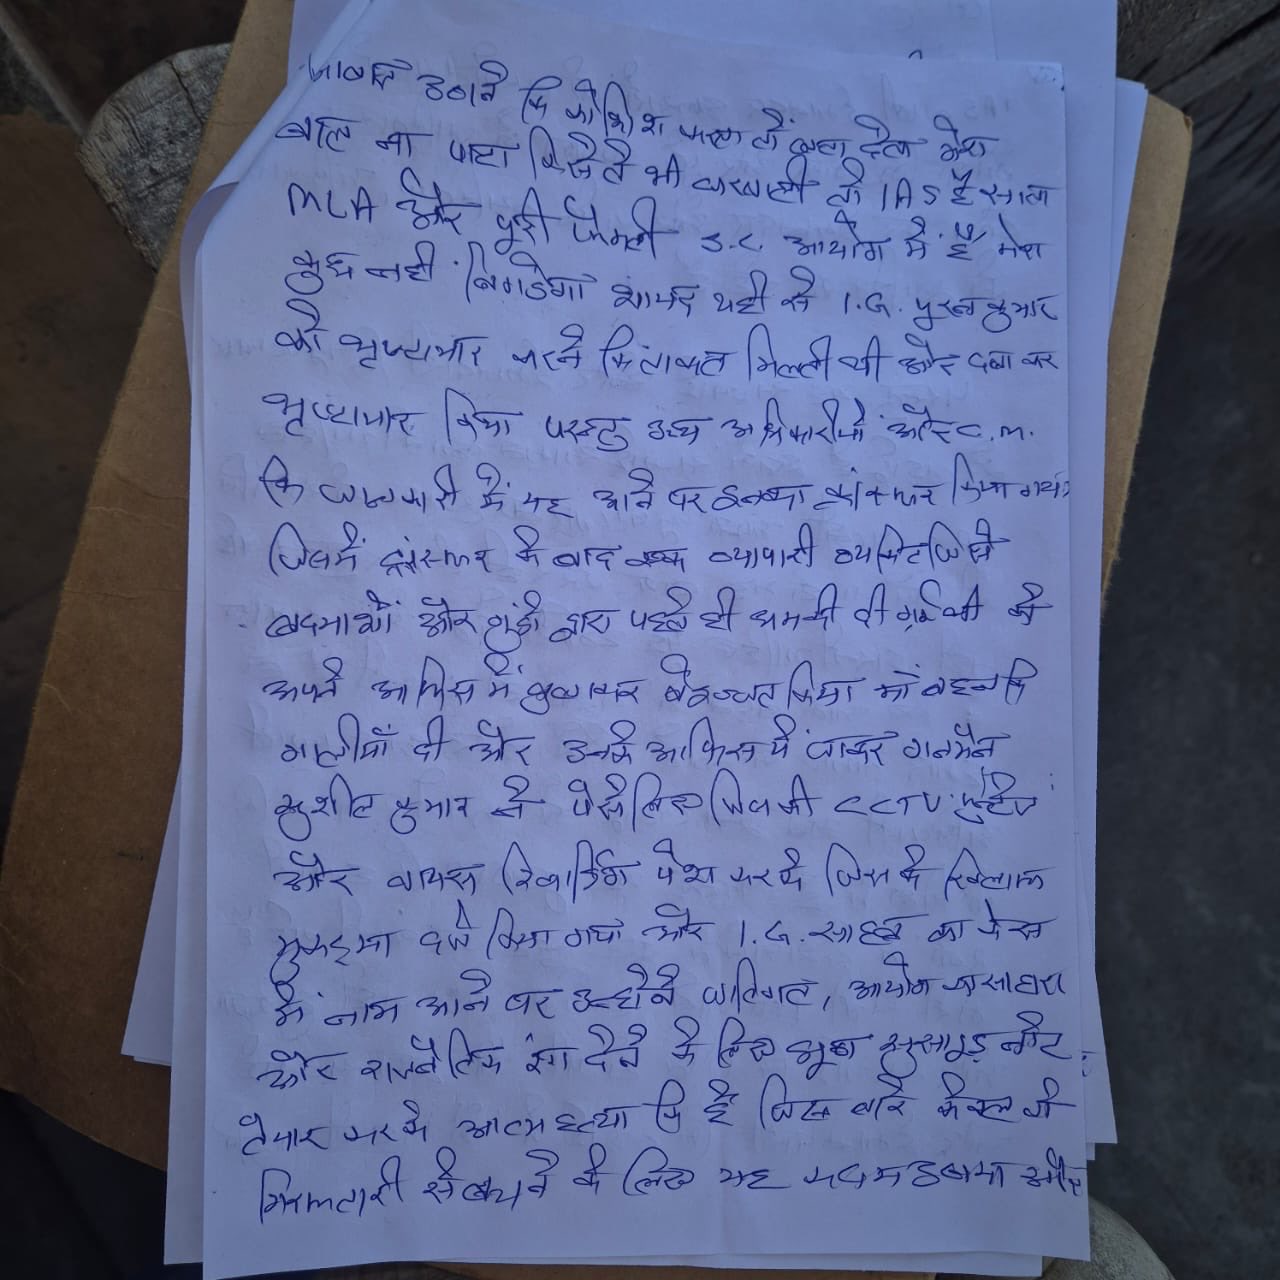 आवाज उठाने कि कोशिश करता तो दबा देता मेरा
बाल ना पाटा किसीने भी घरवाली तो IAS है साला
MLA और पूरी फैमली S.C. आयोग में है मेरा
कुछ नहीं बिगडेगा शायद यही से I.G. पुरन कुमार
को भृष्टाचार करने कि ताकत मिलती थी और दबा कर
भृष्टाचार किया परन्तु उच्च अधिकारीयों और C.M.
कि जानकारी में यह आने पर इनका ट्रांसफर किया गया
जिसमें ट्रांसफर के बाद एक व्यापारी व्यक्ति जिसे
बदमाशों और गुंडो द्वारा पहले ही धमकी दी गई थी को
अपने आफिस में बुलाकर बेइज्जत किया मां बहन कि
गालीयाँ दी और उनके आफिस पे जाकर गनमैन
सुशील कुमार ने पैसे लिए जिसकी CCTV फुटेज
और वायस रिकार्डिंग पेश करके जिस के खिलाफ
मुकदमा दर्ज किया गया और I.G. साहब का केस
में नाम आने पर उन्होंने जातिगत, आयोग का सहारा
और राजनैतिक रंग देने के लिए झूठा सुसाइड नोट
तैयार करके आत्महत्या कि है जिस बारे केवल जी
गिरफ्तारी से बचने के लिए यह कदम उठाया और